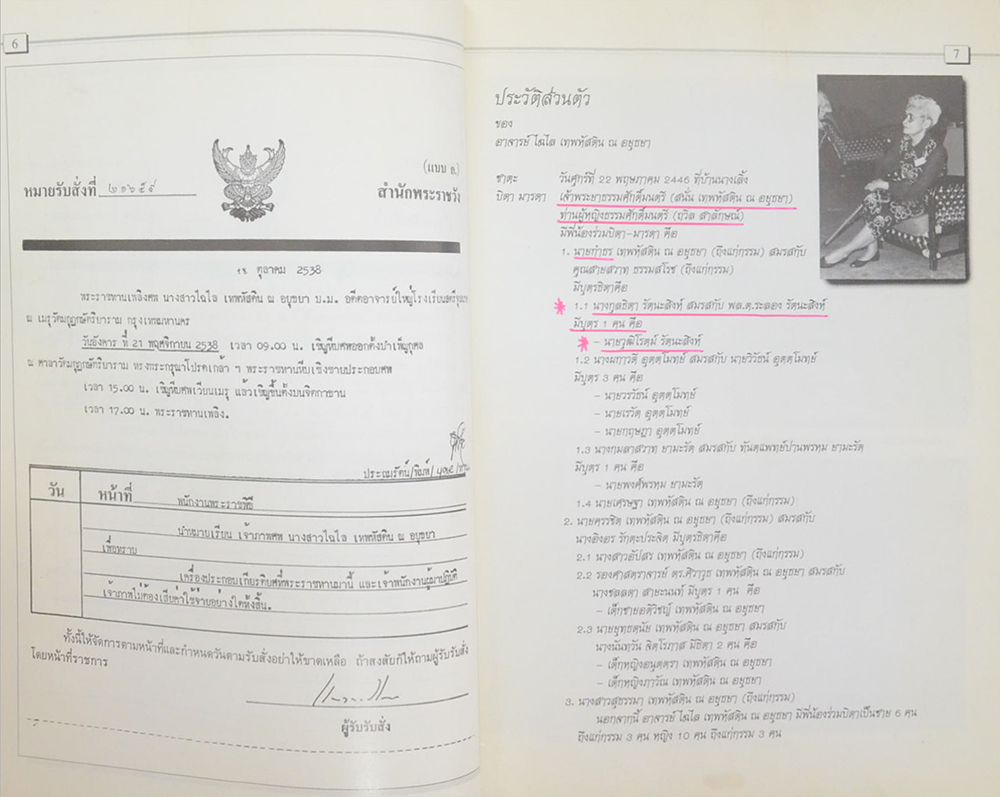 6
(แบบ ก.)
หมายรับสั่งที่ ๒๑๖๕๙ สำนักพระราชวัง
๑๕ ตุลาคม 2538
พระราชทานเพลิงศพ นางสาวไฉไล เทพหัสดิน ณ อยุธยา บ.ม. อดีตอาจารย์ใหญ่โรงเรียนสตรี
ณ เมรุวัดมกุฏกษัตริยาราม กรุงเทพมหานคร
วันอังคาร ที่ 21 พฤศจิกายน 2538 เวลา 09.00 น. เชิญหีบศพออกตั้งบำเพ็ญกุศล
ณ ศาลาวัดมกุฏกษัตริยาราม ทรงพระกรุณาโปรดเกล้า ฯ พระราชทานหีบเชิงชายประกอบศพ
เวลา 15.00 น. เชิญหีบศพเวียนเมรุ แล้วเชิญขึ้นตั้งบนจิตกาธาน
เวลา 17.00 น. พระราชทานเพลิง.
ประถมรัตน์/พิมพ์/
วัน หน้าที่ พนักงานพระราชพิธี
นำหมายเรียน เจ้าภาพศพ นางสาวไฉไล เทพหัสดิน ณ อยุธยา
เพื่อทราบ
เครื่องประกอบเกียรติยศที่พระราชทานมานี้ และเจ้าพนักงานผู้มาปฏิบัติ
เจ้าภาพไม่ต้องเสียค่าใช้จ่ายอย่างใดทั้งสิ้น.
ทั้งนี้ให้จัดการตามหน้าที่และกำหนดวันตามรับสั่งอย่าให้ขาดเหลือ ถ้าสงสัยก็ให้ถามผู้รับรับสั่ง
โดยหน้าที่ราชการ
ผู้รับรับสั่ง
7
ประวัติส่วนตัว
ของ
อาจารย์ ไฉไล เทพหัสดิน ณ อยุธยา
ชาตะ วันศุกร์ที่ 22 พฤษภาคม 2446 ที่บ้านนางเลิ้ง
บิดา มารดา เจ้าพระยาธรรมศักดิ์มนตรี (สนั่น เทพหัสดิน ณ อยุธยา)
ท่านผู้หญิงธรรมศักดิ์มนตรี (ถวิล สาลักษณ์)
มีพี่น้องร่วมบิดา-มารดา คือ
1. นายกำธร เทพหัสดิน ณ อยุธยา (ถึงแก่กรรม) สมรสกับ
คุณสายสวาท ธรรมสโรช (ถึงแก่กรรม)
มีบุตรธิดาคือ
1.1 นางกุลธิดา รัตนะสิงห์ สมรสกับ พล.ต.ระลอง รัตนะสิงห์
มีบุตร 1 คน คือ
- นายวุฒิโรตม์ รัตนะสิงห์
1.2 นางผกาวดี อุตตโมทย์ สมรสกับ นายวิวัธน์ อุตตโมทย์
มีบุตร 3 คน คือ
- นายวรวัธน์ อุตตโมทย์
- นายเรวัต อุตตโมทย์
- นายกฤษฎา อุตตโมทย์
1.3 นางกมลาสวาท ยามะรัต สมรสกับ ทันตแพทย์ปานพรหม ยามะรัต
มีบุตร 1 คน คือ
- นายพงศ์พรหม ยามะรัต
1.4 นายเศรษฐา เทพหัสดิน ณ อยุธยา (ถึงแก่กรรม)
2. นายครรชิต เทพหัสดิน ณ อยุธยา (ถึงแก่กรรม) สมรสกับ
นางอิงอร รักตะประจิต มีบุตรธิดาคือ
2.1 นางสาวอัปสร เทพหัสดิน ณ อยุธยา (ถึงแก่กรรม)
2.2 รองศาสตราจารย์ ดร.ศิราวุธ เทพหัสดิน ณ อยุธยา สมรสกับ
นางชลลดา สายะนนท์ มีบุตร 1 คน คือ
- เด็กชายอติวิชญ์ เทพหัสดิน ณ อยุธยา
2.3 นายยุทธดนัย เทพหัสดิน ณ อยุธยา สมรสกับ
นางนันทวัน จิตโรภาส มีธิดา 2 คน คือ
- เด็กหญิงอนุตตรา เทพหัสดิน ณ อยุธยา
- เด็กหญิงภาวัณ เทพหัสดิน ณ อยุธยา
3. นางสาวสุธรรมา เทพหัสดิน ณ อยุธยา (ถึงแก่กรรม)
นอกจากนี้ อาจารย์ ไฉไล เทพหัสดิน ณ อยุธยา มีพี่น้องร่วมบิดาเป็นชาย 6 คน
ถึงแก่กรรม 3 คน หญิง 10 คน ถึงแก่กรรม 3 คน